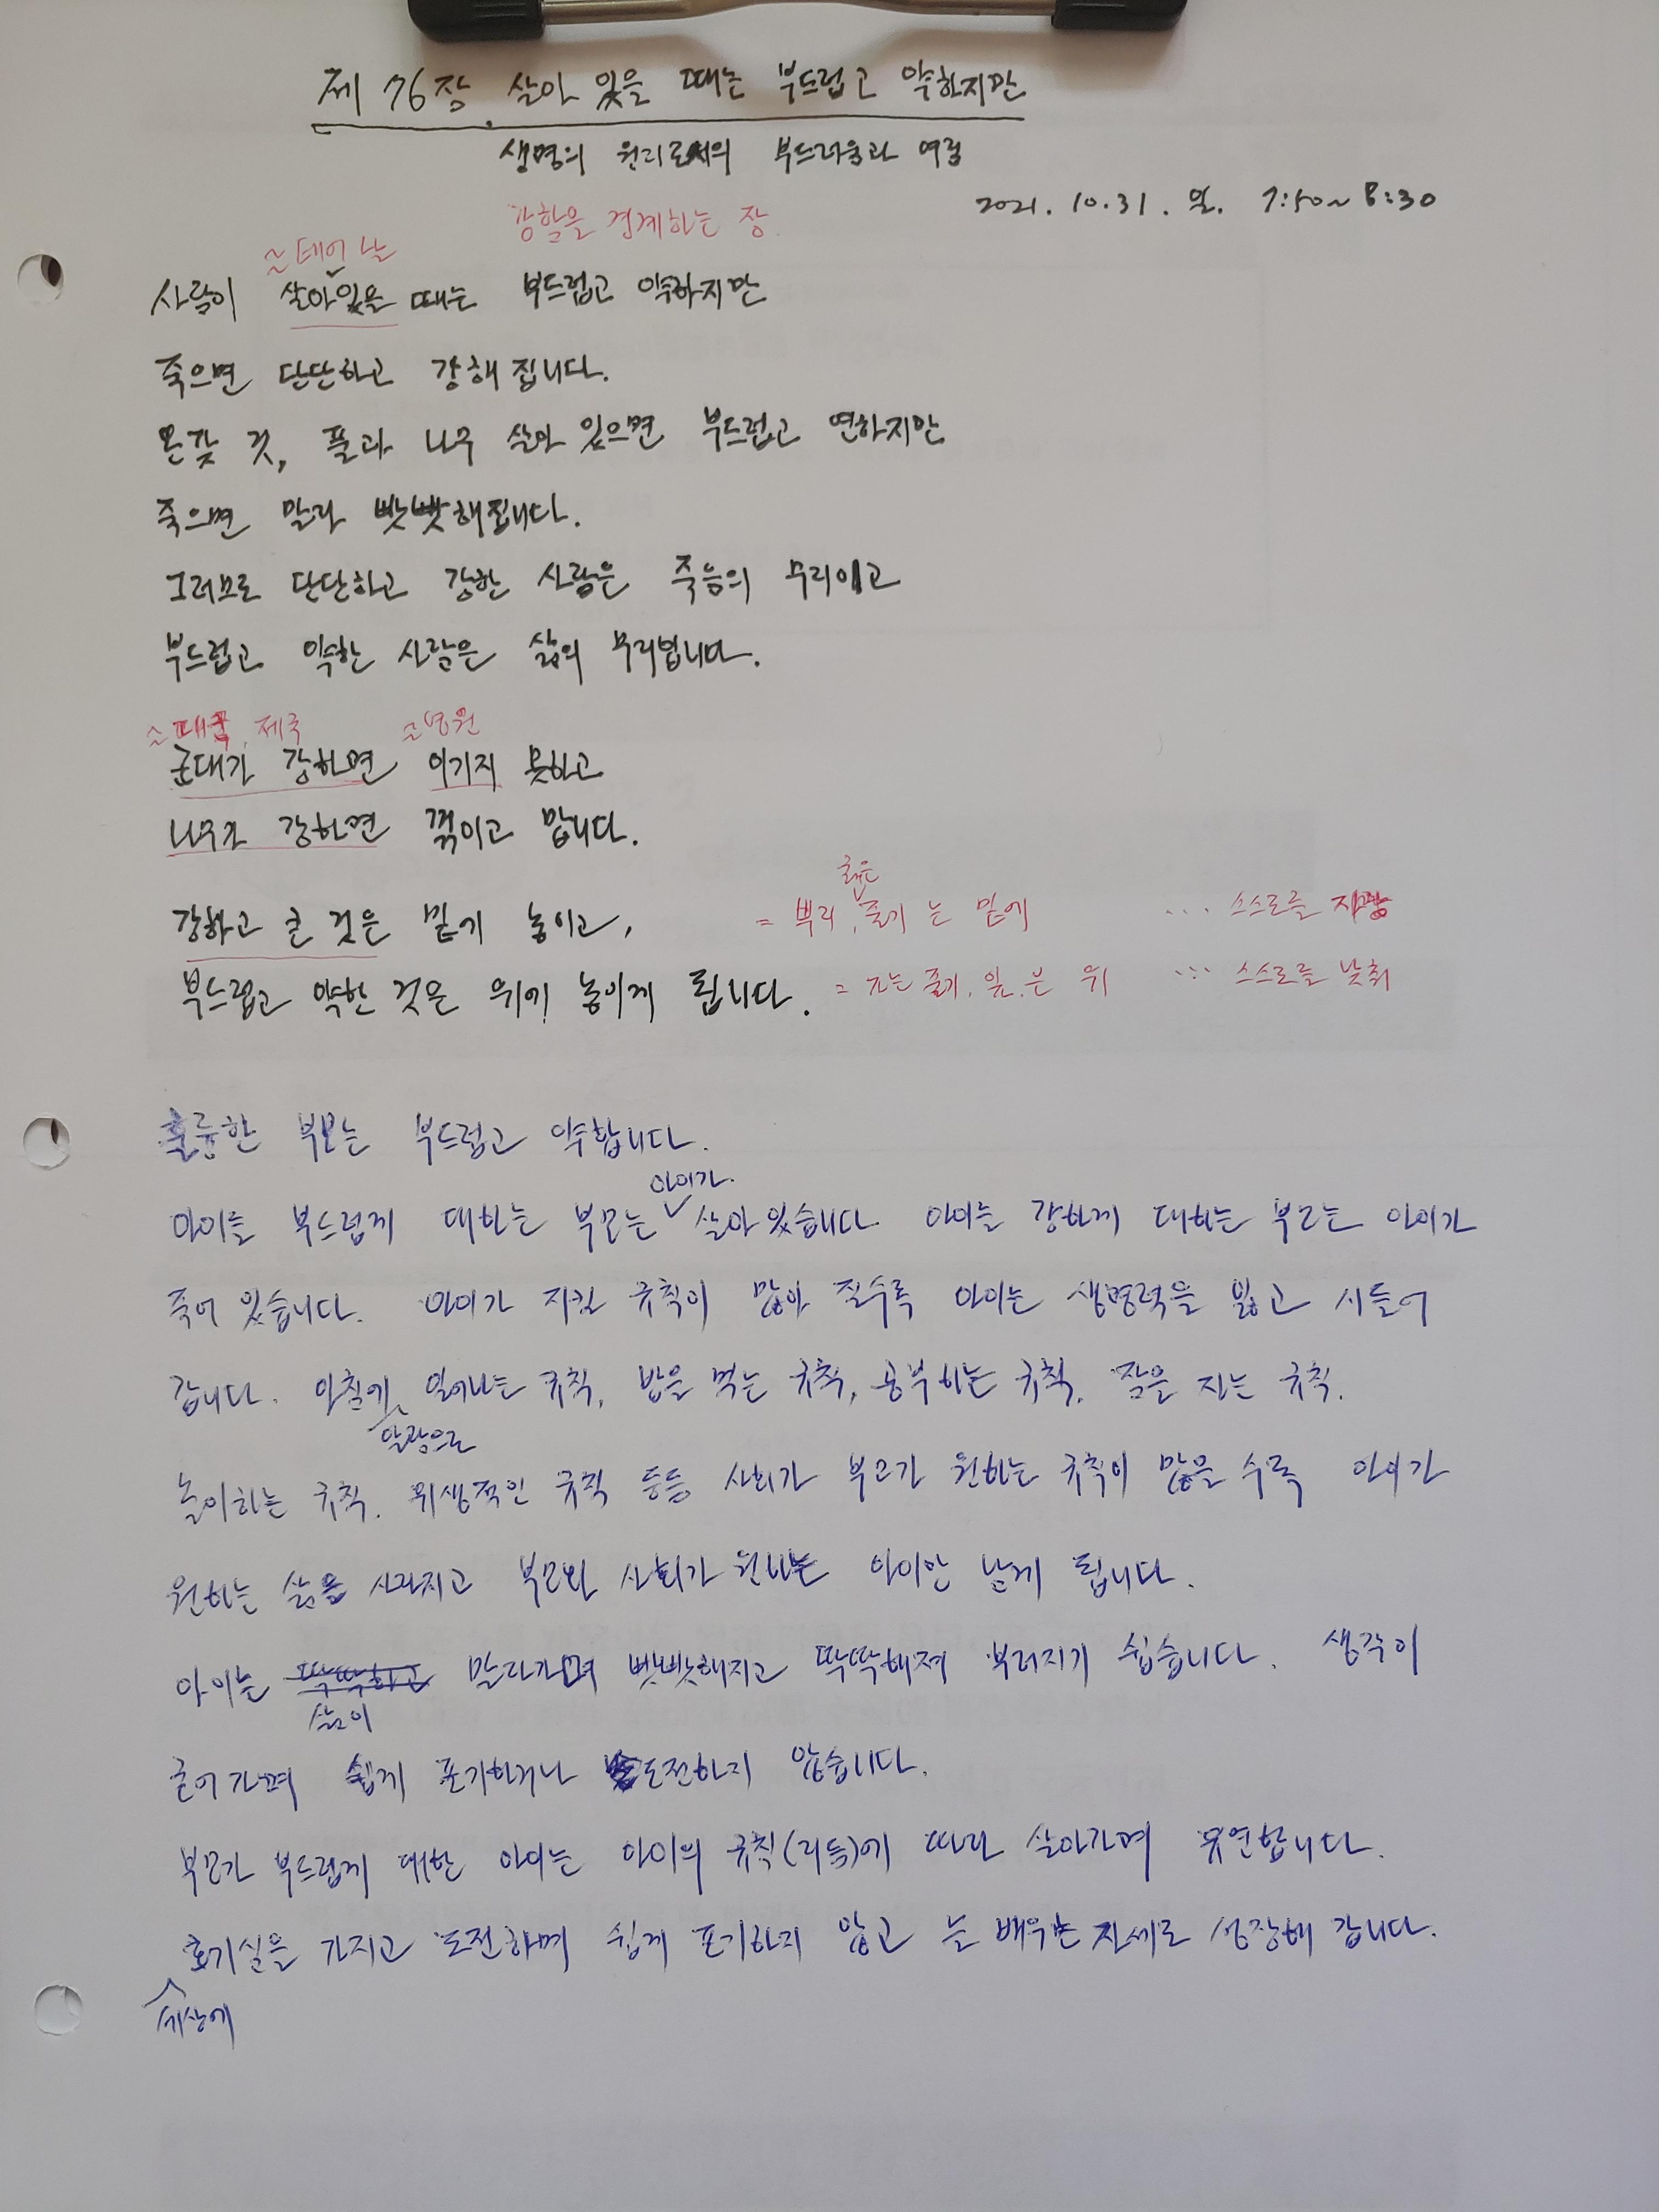 제 76장 살아 있을 때는 부드럽고 약하지만
생명의 원리로서의 부드러움과 여림
2021. 10. 31. 일. 7:50~8:30
강함을 경계하는 장.
태어 날
사람이 살아있을 때는 부드럽고 약하지만
죽으면 단단하고 강해 집니다.
온갖 것, 풀과 나무 살아 있으면 부드럽고 연하지만
죽으면 말라 뻣뻣해집니다.
그러므로 단단하고 강한 사람은 죽음의 무리이고
부드럽고 약한 사람은 삶의 무리입니다.
제국 영원
군대가 강하면 이기지 못하고
나무가 강하면 꺾이고 맙니다.
굵은
강하고 큰 것은 밑에 놓이고, = 뿌리, 줄기 는 밑에 ... 스스로를 자랑
부드럽고 약한 것은 위에 놓이게 됩니다. = 줄기, 잎, 은 위 ... 스스로를 낮춰
훌륭한 부모는 부드럽고 약합니다.
아이가
아이를 부드럽게 대하는 부모는 살아 있습니다. 아이를 강하게 대하는 부모는 아이가
죽어 있습니다. 아이가 지킬 규칙이 많아 질수록 아이는 생명력을 잃고 시들어
갑니다. 아침에 일어나는 규칙, 밥을 먹는 규칙, 공부하는 규칙, 잠을 자는 규칙.
놀이하는 규칙. 위생적인 규칙 등등 사회가 부모가 원하는 규칙이 많을 수록 아이가
원하는 삶을 사라지고 부모와 사회가 원하는 아이만 남게 됩니다.
아이는 딱딱하고 말라가며 뻣뻣해지고 딱딱해져 부러지기 쉽습니다. 생각이
삶이
굳어 가며 쉽게 포기하거나 도전하지 않습니다.
부모가 부드럽게 대한 아이는 아이의 규칙(리듬)에 따라 살아가며 유연합니다.
호기심을 가지고 도전하며 쉽게 포기하지 않고 늘 배우는 자세로 성장해 갑니다.
세상에